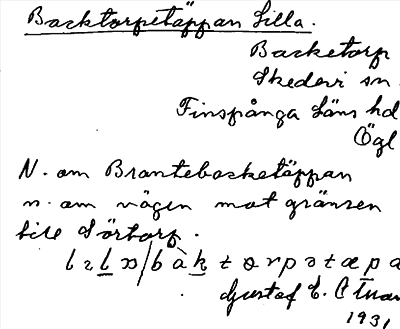 Backtorpetäppan Lilla.
Backetorp
Skedevi sn.
Finspånga läns hd
Ögl
N. om Brantebacketäppan
n. om vägen mot gränsen
till Sörtorp.
Gustaf E.
1931